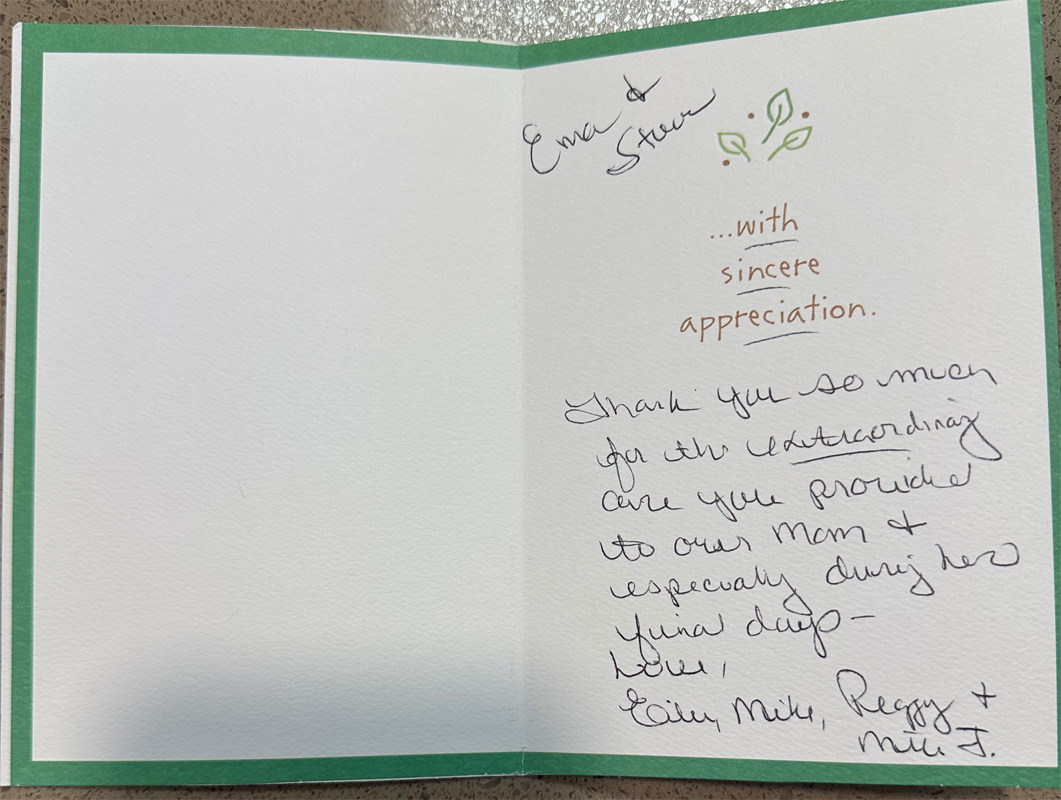 Ema &
Steve
...with
sincere
appreciation.
Thank you so much
for the extraordinary
care you provided
to our Mom &
especially during her
final days –
Love,
Mike, Peggy +
Mike J.